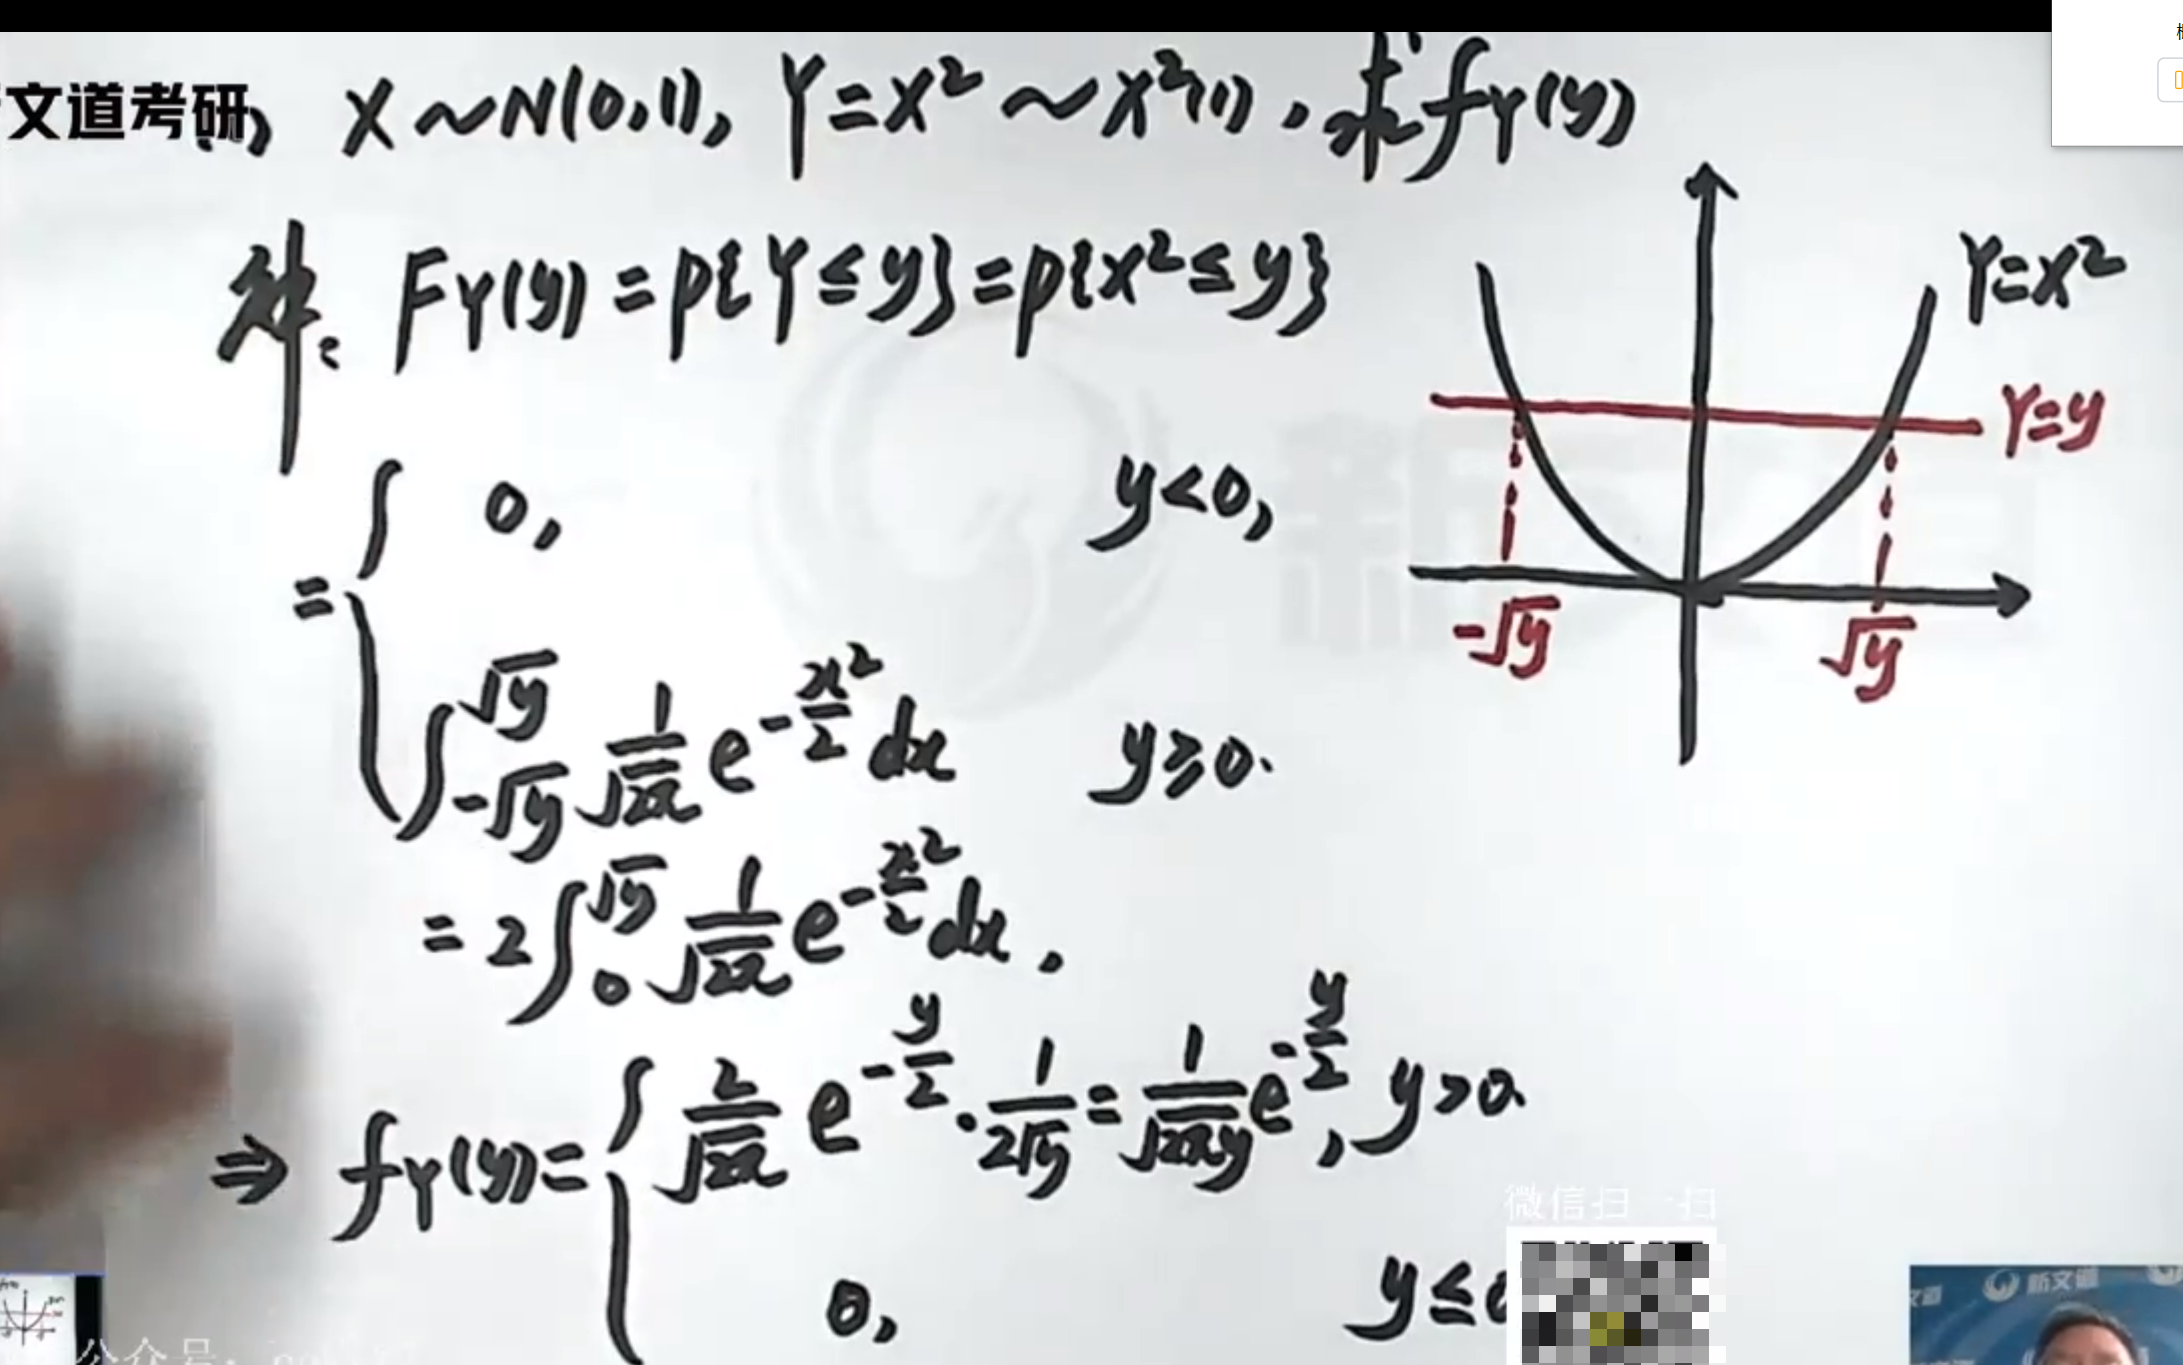 文道考研
X~N(0,1), Y=X²~χ²(1), 求f_Y(y)
解: F_Y(y)=P{Y≤y}=P{X²≤y}
Y=X²
Y=y
-√y
√y
= { 0, y<0,
∫_{-√y}^{√y} 1/√(2π) e^{-x²/2} dx y≥0.
=2∫_0^{√y} 1/√(2π) e^{-x²/2} dx,
⇒ f_Y(y)= { 2/√(2π) e^{-y/2} · 1/(2√y) = 1/√(2πy) e^{-y/2}, y>0.
0, y≤
微信扫一扫
公众号:
文道
新文道